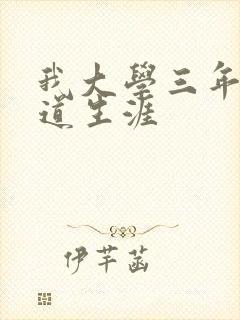 我大學三年
道生涯
伊芊菡